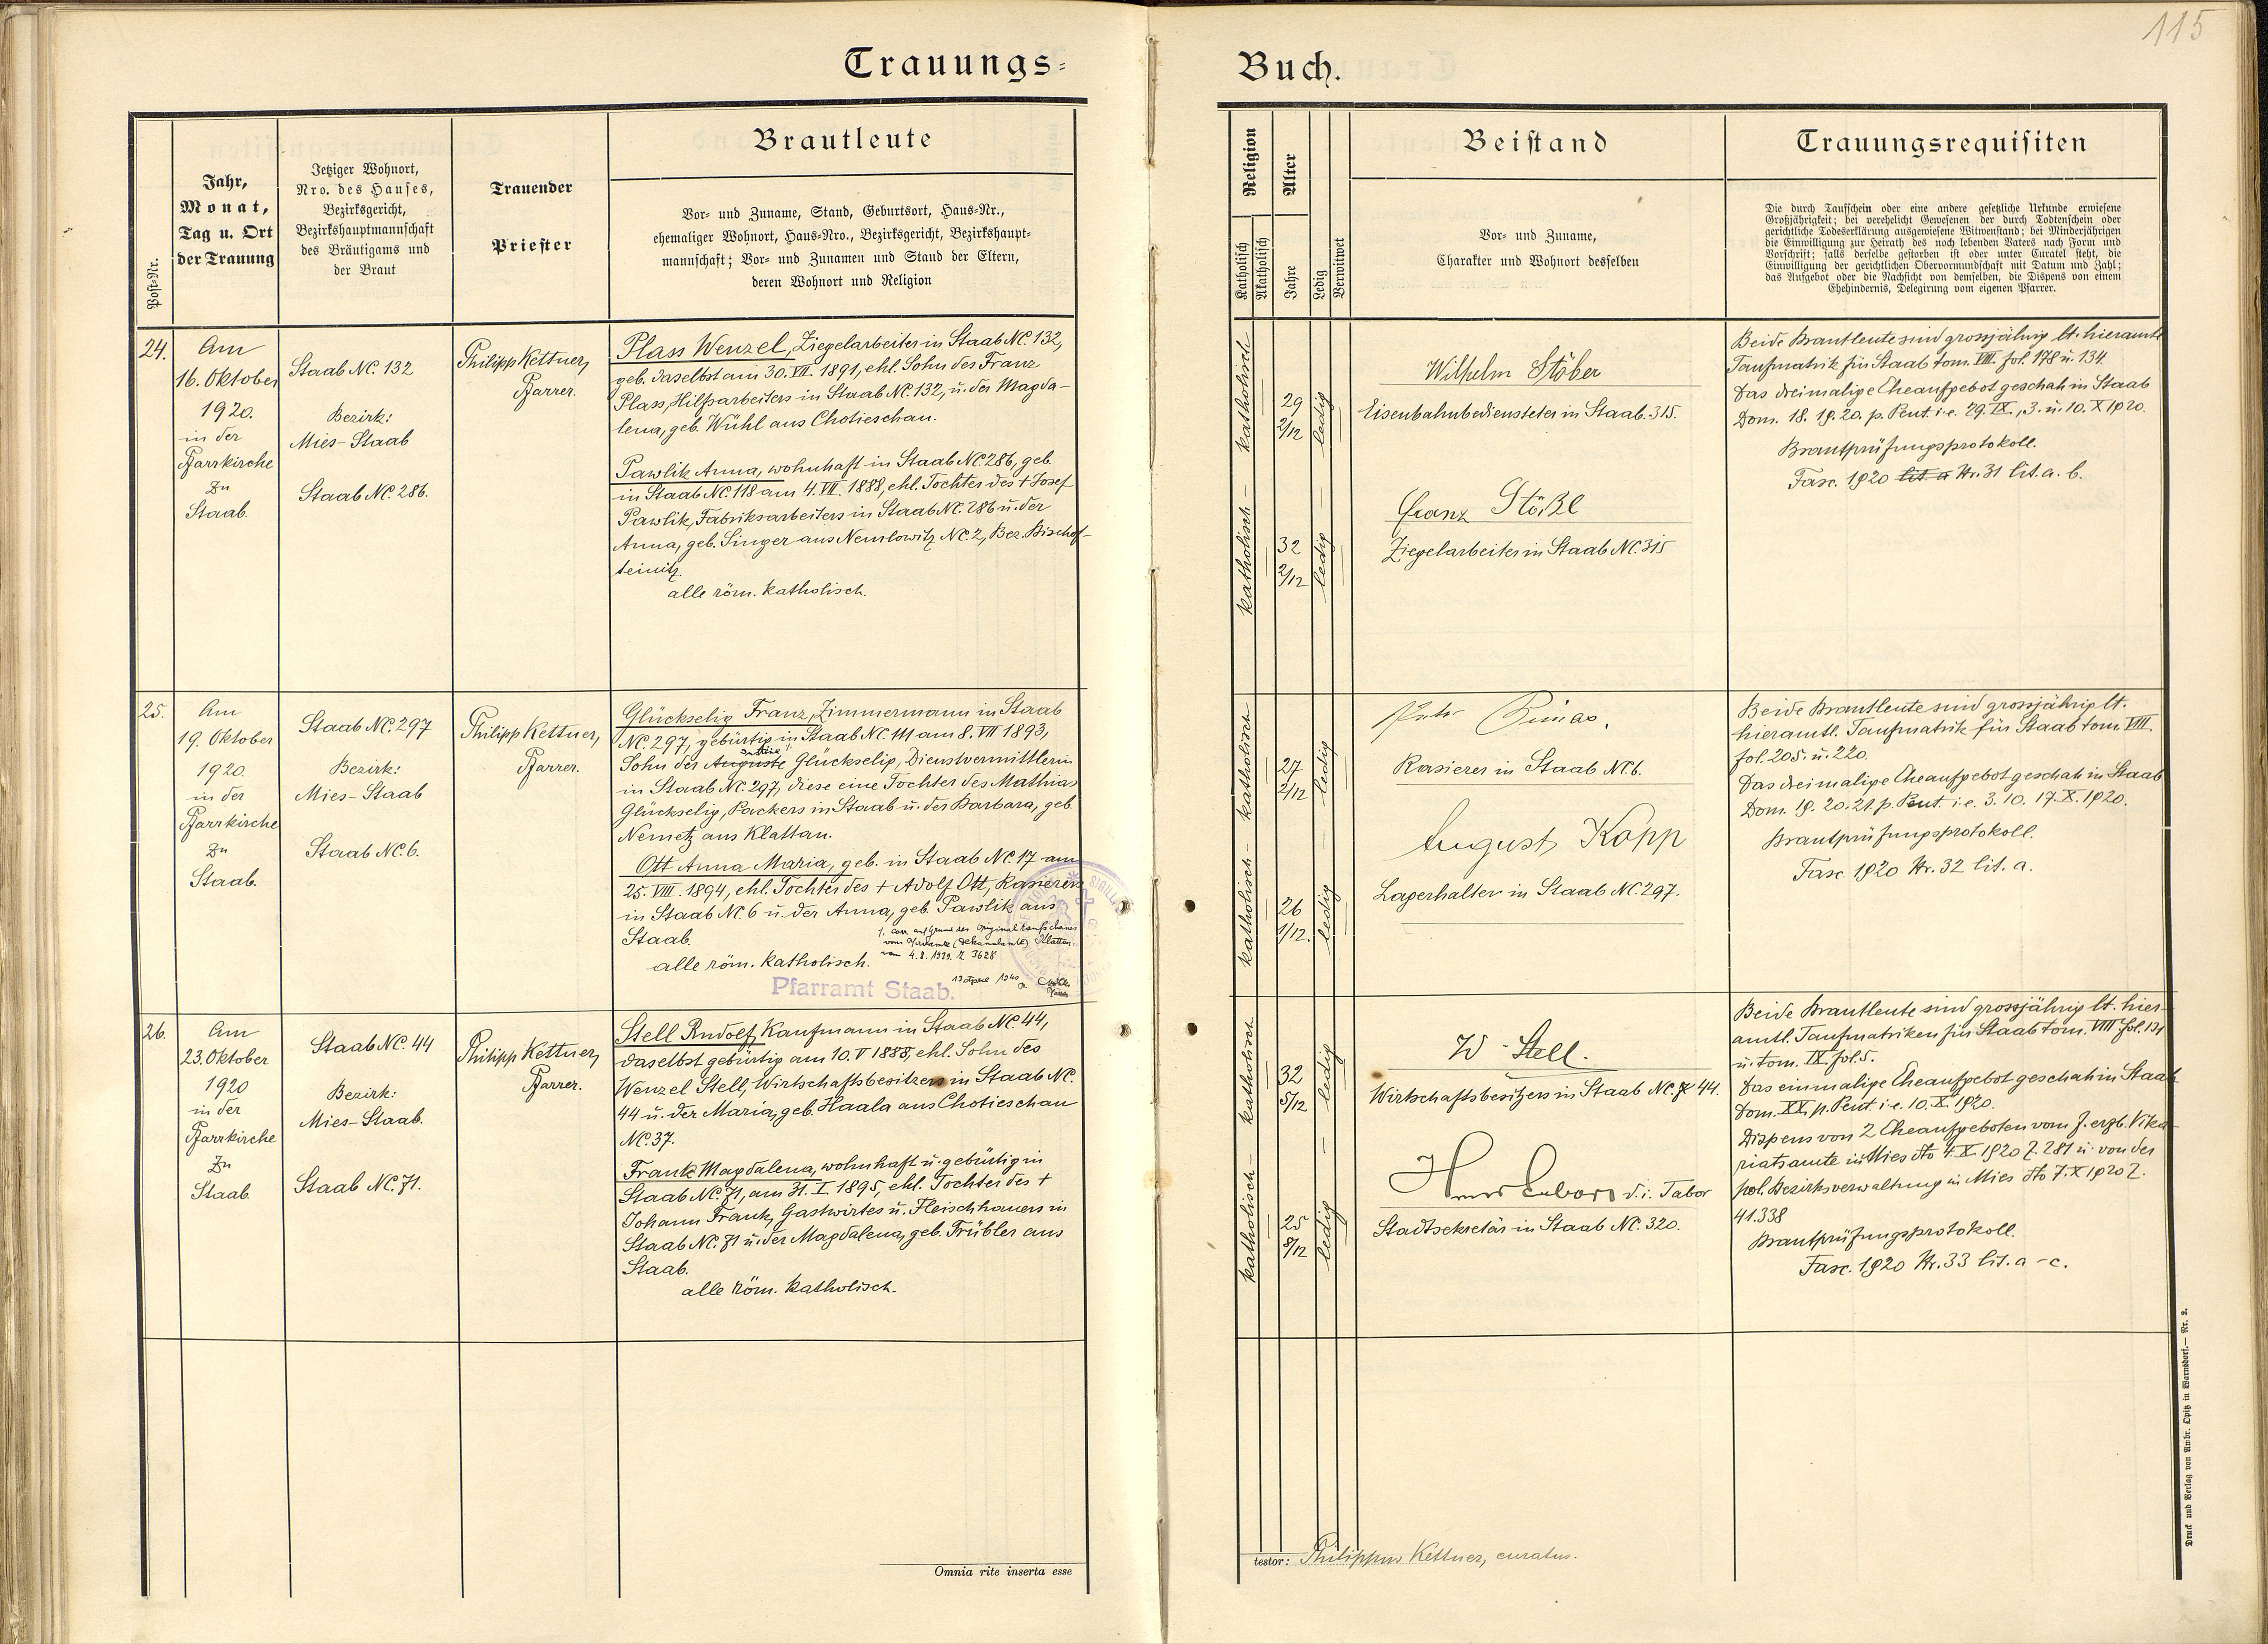 115
Trauungs=
Buch.
Post-Nr.
Jahr,
Monat,
Tag u. Ort
der Trauung
Jetziger Wohnort,
Nro. des Hauses,
Bezirksgericht,
Bezirkshauptmannschaft
des Bräutigams und
der Braut
Trauender
Priester
Brautleute
Vor- und Zuname, Stand, Geburtsort, Haus-Nr.,
ehemaliger Wohnort, Haus-Nro., Bezirksgericht, Bezirkshaupt-
mannschaft; Vor- und Zunamen und Stand der Eltern,
deren Wohnort und Religion
Religion
Katholisch
Akatholisch
Alter
Jahre
Ledig
Verwitwet
Beistand
Vor- und Zuname,
Charakter und Wohnort desselben
Trauungsrequisiten
Die durch Taufschein oder eine andere gesetzliche Urkunde erwiesene
Großjährigkeit; bei verehelicht Gewesenen der durch Todtenschein oder
gerichtliche Todeserklärung ausgewiesene Witwenstand; bei Minderjährigen
die Einwilligung zur Heirath des noch lebenden Vaters nach Form und
Vorschrift; falls derselbe gestorben ist oder unter Curatel steht, die
Einwilligung der gerichtlichen Obervormundschaft mit Datum und Zahl;
das Aufgebot oder die Nachsicht von demselben, die Dispens von einem
Ehehindernis, Delegirung vom eigenen Pfarrer.
24.
Am
16. Oktober
1920.
in der
Pfarrkirche
zu
Staab.
Staab NC. 132
Bezirk:
Mies-Staab
Staab NC. 286.
Philipp Kettner,
Pfarrer.
Plass Wenzel, Ziegelarbeiter in Staab NC. 132,
geb. daselbst am 30. VII. 1891, ehl. Sohn des Franz
Plass, Hilfsarbeiters in Staab NC. 132, u. der Magda-
lena, geb. Wühl aus Chotieschau.
Pawlik Anna, wohnhaft in Staab NC. 286, geb.
in Staab NC. 118 am 4. VII. 1888, ehl. Tochter des + Josef
Pawlik, Fabriksarbeiters in Staab NC. 286 u. der
Anna, geb. Singer aus Nemlowitz NC. 2, Bez. Bischof-
teinitz.
alle röm. katholisch.
katholisch - katholisch
29
2/12
32
2/12
ledig
ledig
Wilhelm Stöber
Eisenbahnbediensteter in Staab. 315.
Franz Stößl
Ziegelarbeiter in Staab NC. 315
Beide Brautleute sind grossjährig lt. hieramtl.
Taufmatrik für Staab tom. VIII. fol. 178 u. 134.
Das dreimalige Eheaufgebot geschah in Staab
Dom. 18. 19. 20. p. Pent. i. e. 29. IX., 3. u. 10. X 1920.
Brautprüfungsprotokoll.
Fasc. 1920 lit. a Nr. 31 lit. a. b.
25.
Am
19. Oktober
1920.
in der
Pfarrkirche
zu
Staab.
Staab NC. 297
Bezirk:
Mies-Staab
Staab NC. 6.
Philipp Kettner,
Pfarrer.
Glückselig Franz, Zimmermann in Staab
NC. 297, gebürtig in Staab NC. 111 am 8. VII 1893,
Sohn der Auguste Glückselig, Dienstvermittlerin
in Staab NC. 297, diese eine Tochter des Mathias
Glückselig, Packers in Staab u. der Barbara, geb.
Nemetz aus Klattau.
Ott Anna Maria, geb. in Staab NC. 17 am
25. VIII. 1894, ehl. Tochter des + Adolf Ott, Rasierers
in Staab NC. 6 u. der Anna, geb. Pawlik aus
Staab.
1. corr. auf Grund des Originaltaufscheines
vom Pfarramte (Dekanalamte) Klattau
vom 4. 8. 1939. Z. 3628
alle röm. katholisch.
13 April 1940
Pfarramt Staab.
katholisch - katholisch
27
2/12
26
1/12.
ledig
ledig
Rasierer in Staab NC. 6.
August Kopp
Lagerhalter in Staab NC. 297.
Beide Brautleute sind grossjährig lt.
hieramtl. Taufmatrik für Staab tom. VIII.
fol. 205. u. 220.
Das dreimalige Eheaufgebot geschah in Staab
Dom. 19. 20. 21. p. Pent. i. e. 3. 10. 17. X. 1920.
Brautprüfungsprotokoll.
Fasc. 1920 Nr. 32 lit. a.
26.
Am
23. Oktober
1920
in der
Pfarrkirche
zu
Staab.
Staab NC. 44
Bezirk:
Mies-Staab.
Staab NC. 71.
Philipp Kettner,
Pfarrer.
Stell Rudolf, Kaufmann in Staab NC. 44,
daselbst gebürtig am 10. V 1888, ehl. Sohn des
Wenzel Stell, Wirtschaftsbesitzers in Staab NC.
44 u. der Maria, geb. Haala aus Chotieschau
NC. 37.
Frank Magdalena, wohnhaft u. gebürtig in
Staab NC. 71, am 31. I. 1895, ehl. Tochter des +
Johann Frank, Gastwirtes u. Fleischhauers in
Staab NC. 71 u. der Magdalena, geb. Trübler aus
Staab.
alle röm. katholisch.
katholisch - katholisch
32
5/12
25
8/12
ledig
ledig
W. Stell.
Wirtschaftsbesitzers in Staab NC. 44.
d. i. Tabor
Stadtsekretär in Staab NC. 320.
Beide Brautleute sind grossjährig lt. hier-
amtl. Taufmatriken für Staab tom. VIII fol. 131
u. tom. IX. fol. 5.
Das einmalige Eheaufgebot geschah in Staab
Dom. XX. p. Pent. i. e. 10. X. 1920.
Dispens von 2 Eheaufgeboten vom f. erzb. Vika-
riatsamte in Mies dto 4. X. 1920 Z. 281 u. von der
pol. Bezirksverwaltung in Mies dto 7. X 1920 Z.
41.338
Brautprüfungsprotokoll.
Fasc. 1920 Nr. 33 lit. a - c.
Omnia rite inserta esse
testor: Philippus Kettner, curatus.
Druck und Verlag von Ambr. Opitz in Warnsdorf. — Nr. 2.